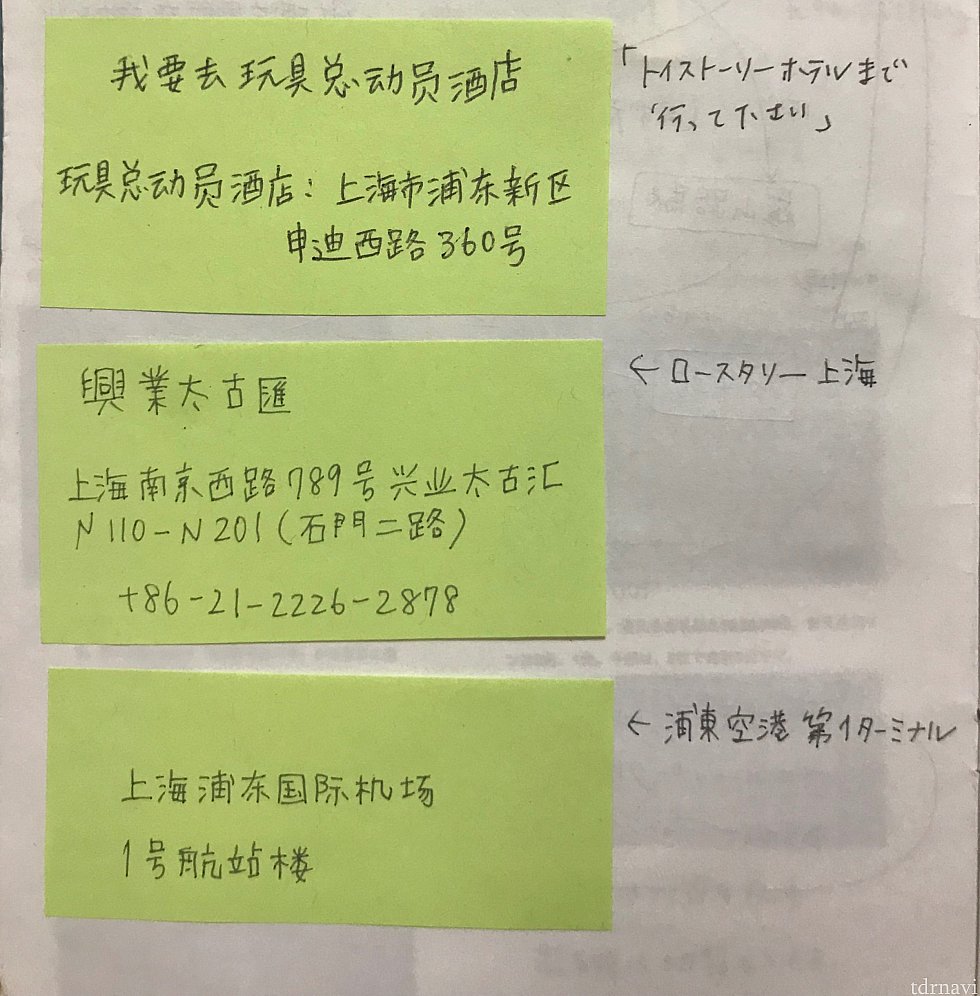 我要去玩具总动员酒店
玩具总动员酒店：上海市浦东新区
申迪西路360号
「トイストーリーホテルまで
行って下さい」
興業太古匯
上海南京西路789号兴业太古汇
N110-N201(石門二路)
+86-21-2226-2878
←ロースタリー上海
上海浦东国际机场
1号航站楼
←浦東空港第1ターミナル
tdrnavi